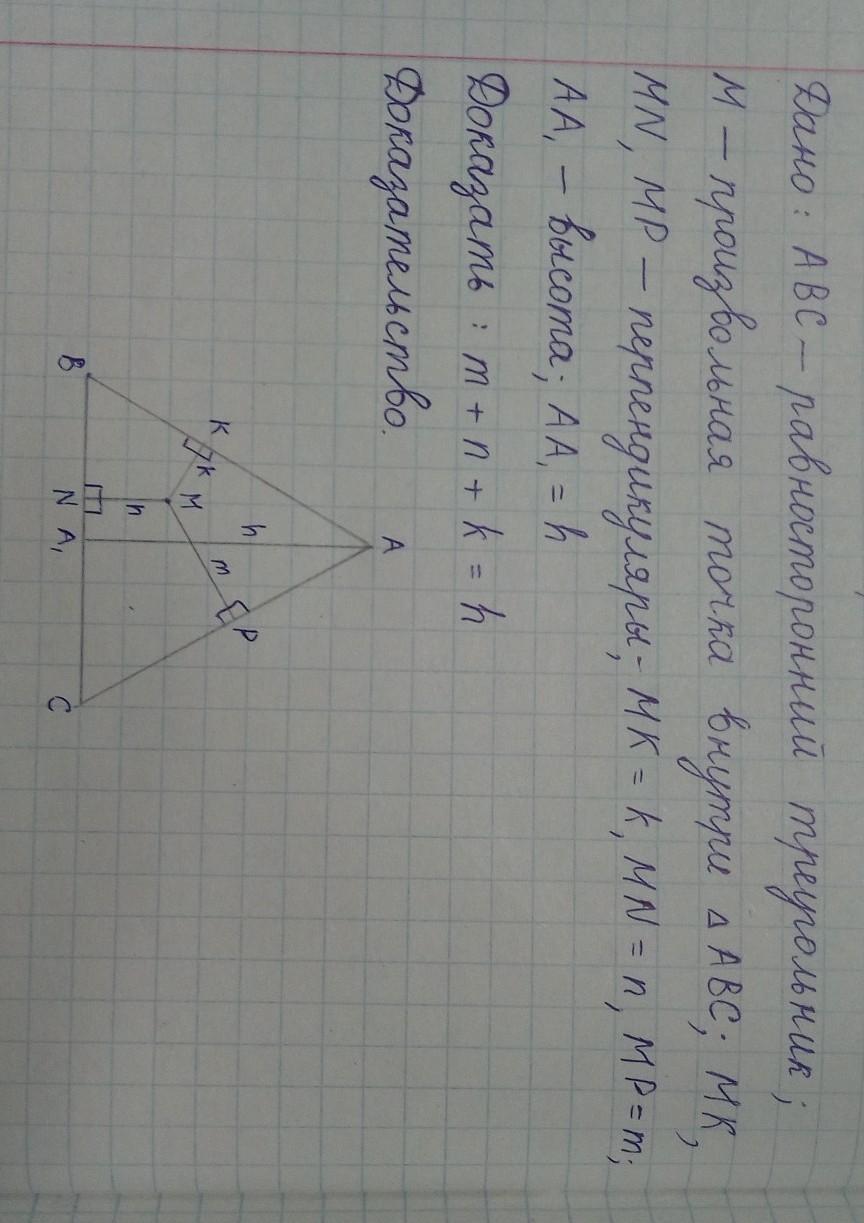 Дано: ABC — равносторонний треугольник;
M — произвольная точка внутри △ ABC; MK,
MN, MP — перпендикуляры; MK = k, MN = n, MP = m;
AA₁ — высота; AA₁ = h
Доказать: m + n + k = h
Доказательство.
A
K
P
k
h
m
M
n
B
N
A₁
C